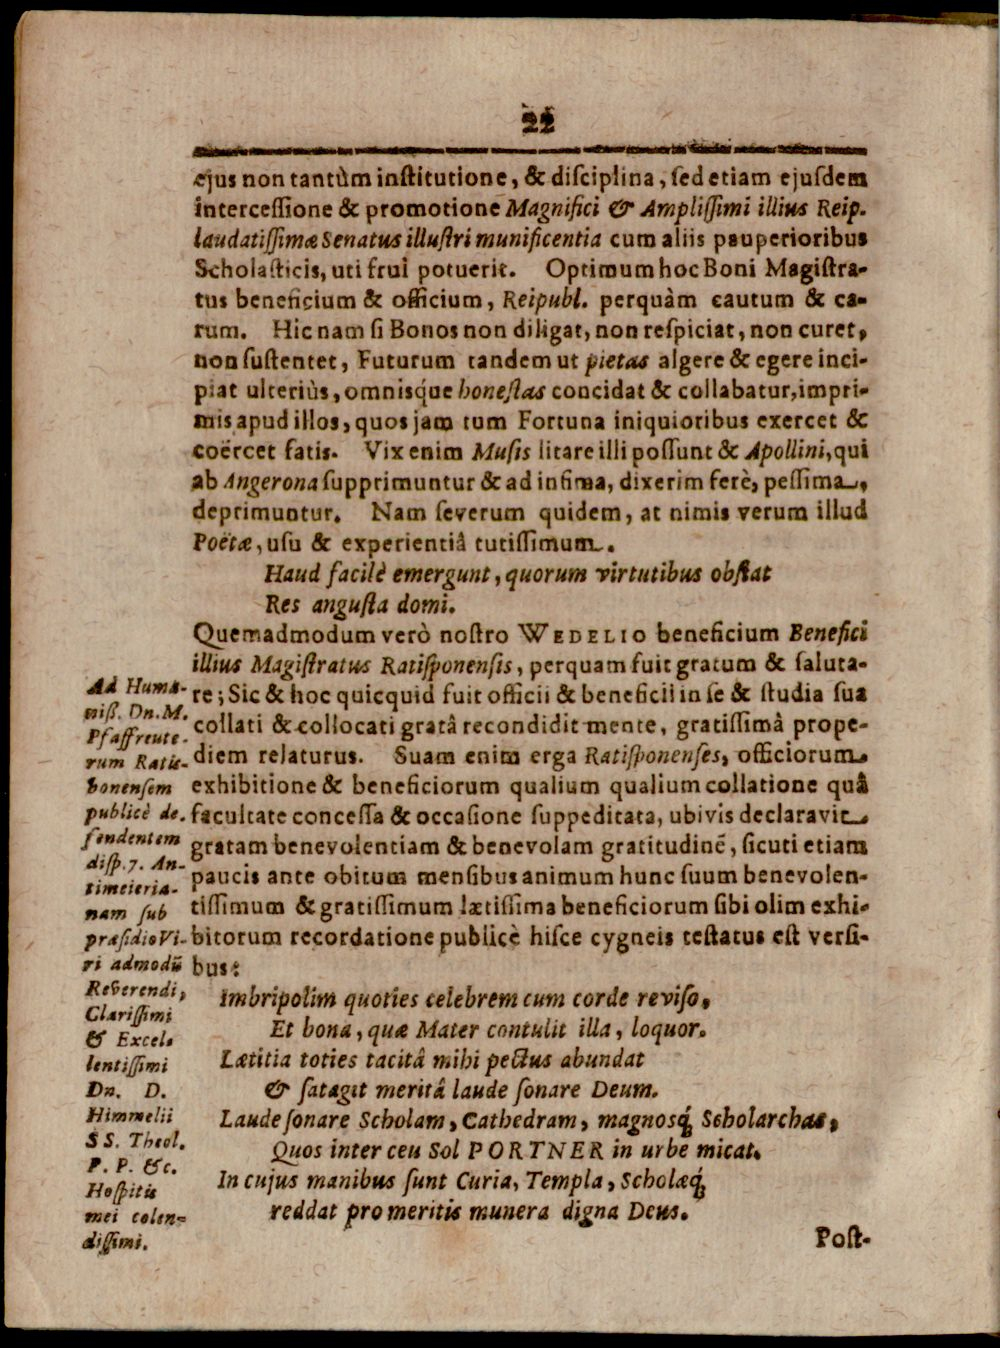 22
ejus non tantùm institutione, & disciplina, sed etiam ejusdem
intercessione & promotione Magnifici & Amplissimi illius Reip.
laudatissimæ Senatus illustri munificentia cum aliis pauperioribus
Scholasticis, uti frui potuerit. Optimum hoc Boni Magistra-
tus beneficium & officium, Reipubl. perquàm cautum & ca-
rum. Hic nam si Bonos non diligat, non respiciat, non curet,
non sustentet, Futurum tandem ut pietas algere & egere inci-
piat ulteriùs, omnisq́ue honestas concidat & collabatur, impri-
mis apud illos, quos jam tum Fortuna iniquioribus exercet &
coërcet fatis. Vix enim Musis litare illi possunt & Apollini, qui
ab Angerona supprimuntur & ad infima, dixerim ferè, pessima,
deprimuntur. Nam severum quidem, at nimis verum illud
Poëtæ, usu & experientiâ tutissimum.
Haud facilè emergunt, quorum virtutibus obstat
Res angusta domi.
Quemadmodum verò nostro WEDELIO beneficium Benefici
illius Magistratus Ratisponensis, perquam fuit gratum & saluta-
re; Sic & hoc quicquid fuit officii & beneficii in se & studia sua
collati & collocati gratâ recondidit mente, gratissimâ prope-
diem relaturus. Suam enim erga Ratisponenses, officiorum
exhibitione & beneficiorum qualium qualium collatione quâ
facultate concessa & occasione suppeditata, ubivis declaravit
gratam benevolentiam & benevolam gratitudinē, sicuti etiam
paucis ante obitum mensibus animum hunc suum benevolen-
tissimum & gratissimum lætissima beneficiorum sibi olim exhi-
bitorum recordatione publicè hisce cygneis testatus est versi-
bus:
Ad Huma-
niß. Dn. M.
Pfaffreute-
rum Ratis-
bonensem
publicè de-
fendentem
disp. 7. An-
timeieria-
nam sub
præsidio Vi-
ri admodū
Reverendi,
Clarissimi
& Excel-
lentissimi
Dn. D.
Himmelii
SS. Theol.
P. P. &c.
Hospitis
mei colen-
dissimi.
Imbripolim quoties celebrem cum corde reviso,
Et bona, quæ Mater contulit illa, loquor.
Lætitia toties tacitâ mihi pectus abundat
& satagit meritâ laude sonare Deum.
Laude sonare Scholam, Cathedram, magnosq́; Scholarchas,
Quos inter ceu Sol PORTNER in urbe micat.
In cujus manibus sunt Curia, Templa, Scholæq́;
reddat pro meritis munera digna Deus.
Post-